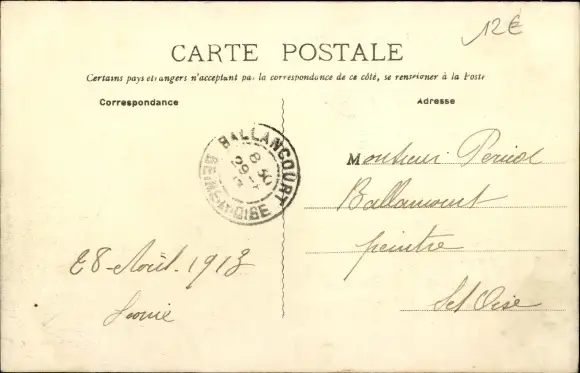 12€
CARTE POSTALE
Certains pays etrangers n'acceptent pas la correspondance de ce côté, se renseigner à la Poste
Correspondance
Adresse
BALLANCOURT
8 50
29
SEINE-ET-OISE
Monsieur
Ballancourt
peintre
S et Oise
28 Août. 1913